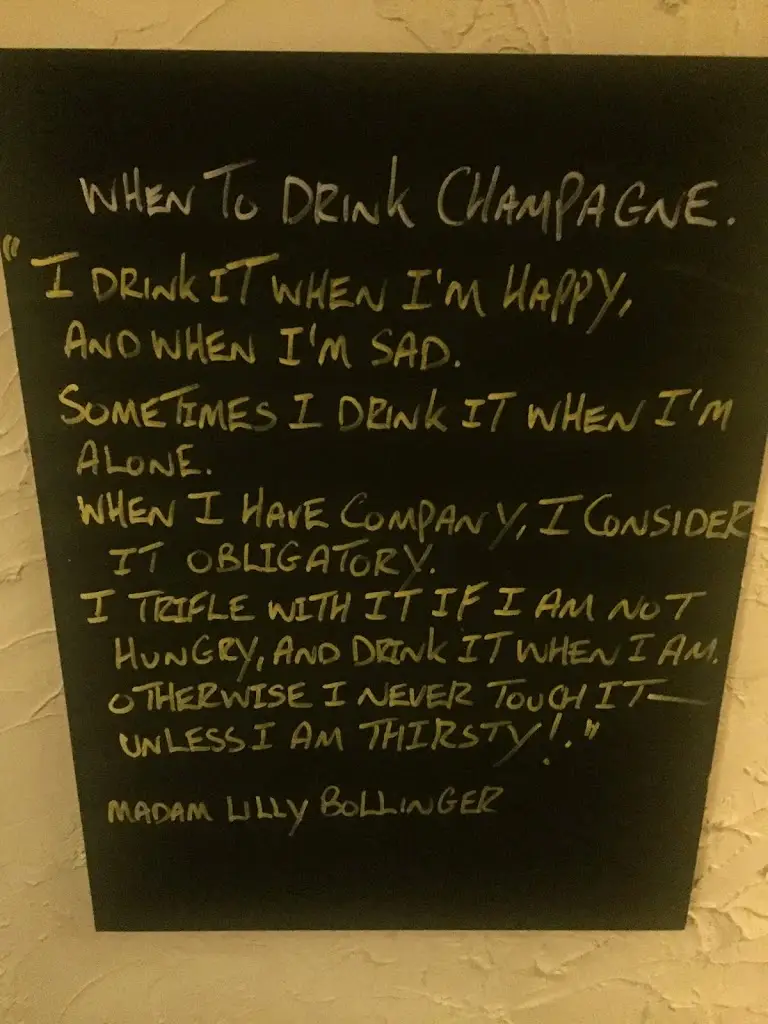 WHEN TO DRINK CHAMPAGNE.
"I DRINK IT WHEN I'M HAPPY,
AND WHEN I'M SAD.
SOMETIMES I DRINK IT WHEN I'M
ALONE.
WHEN I HAVE COMPANY, I CONSIDER
IT OBLIGATORY.
I TRIFLE WITH IT IF I AM NOT
HUNGRY, AND DRINK IT WHEN I AM.
OTHERWISE I NEVER TOUCH IT—
UNLESS I AM THIRSTY!."
MADAM LILLY BOLLINGER